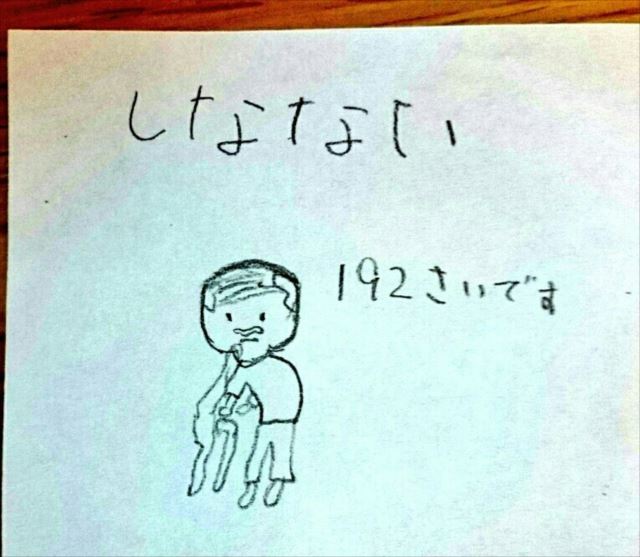 しなない
192さいです